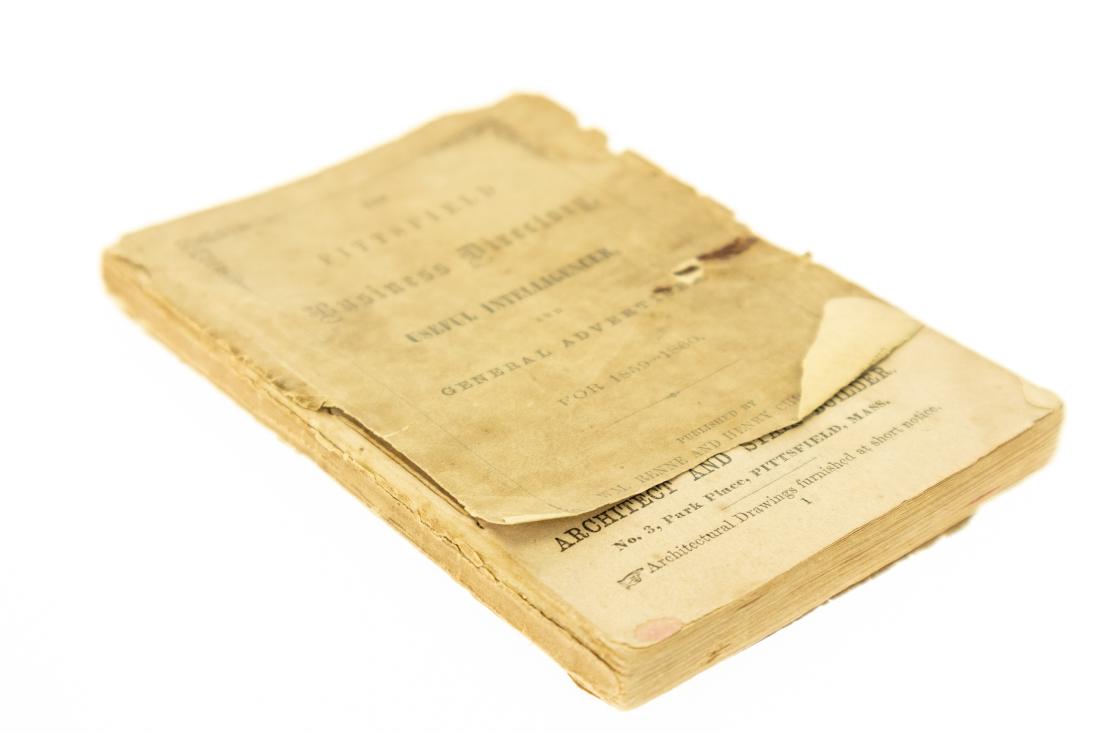 PITTSFIELD
Business Directory,
USEFUL INTELLIGENCER,
AND
GENERAL ADVERTISER
FOR 1859-1860.
PUBLISHED BY
RENNE AND HENRY
ARCHITECT AND STAIR BUILDER,
No. 3, Park Place, PITTSFIELD, MASS.
Architectural Drawings furnished at short notice.
1